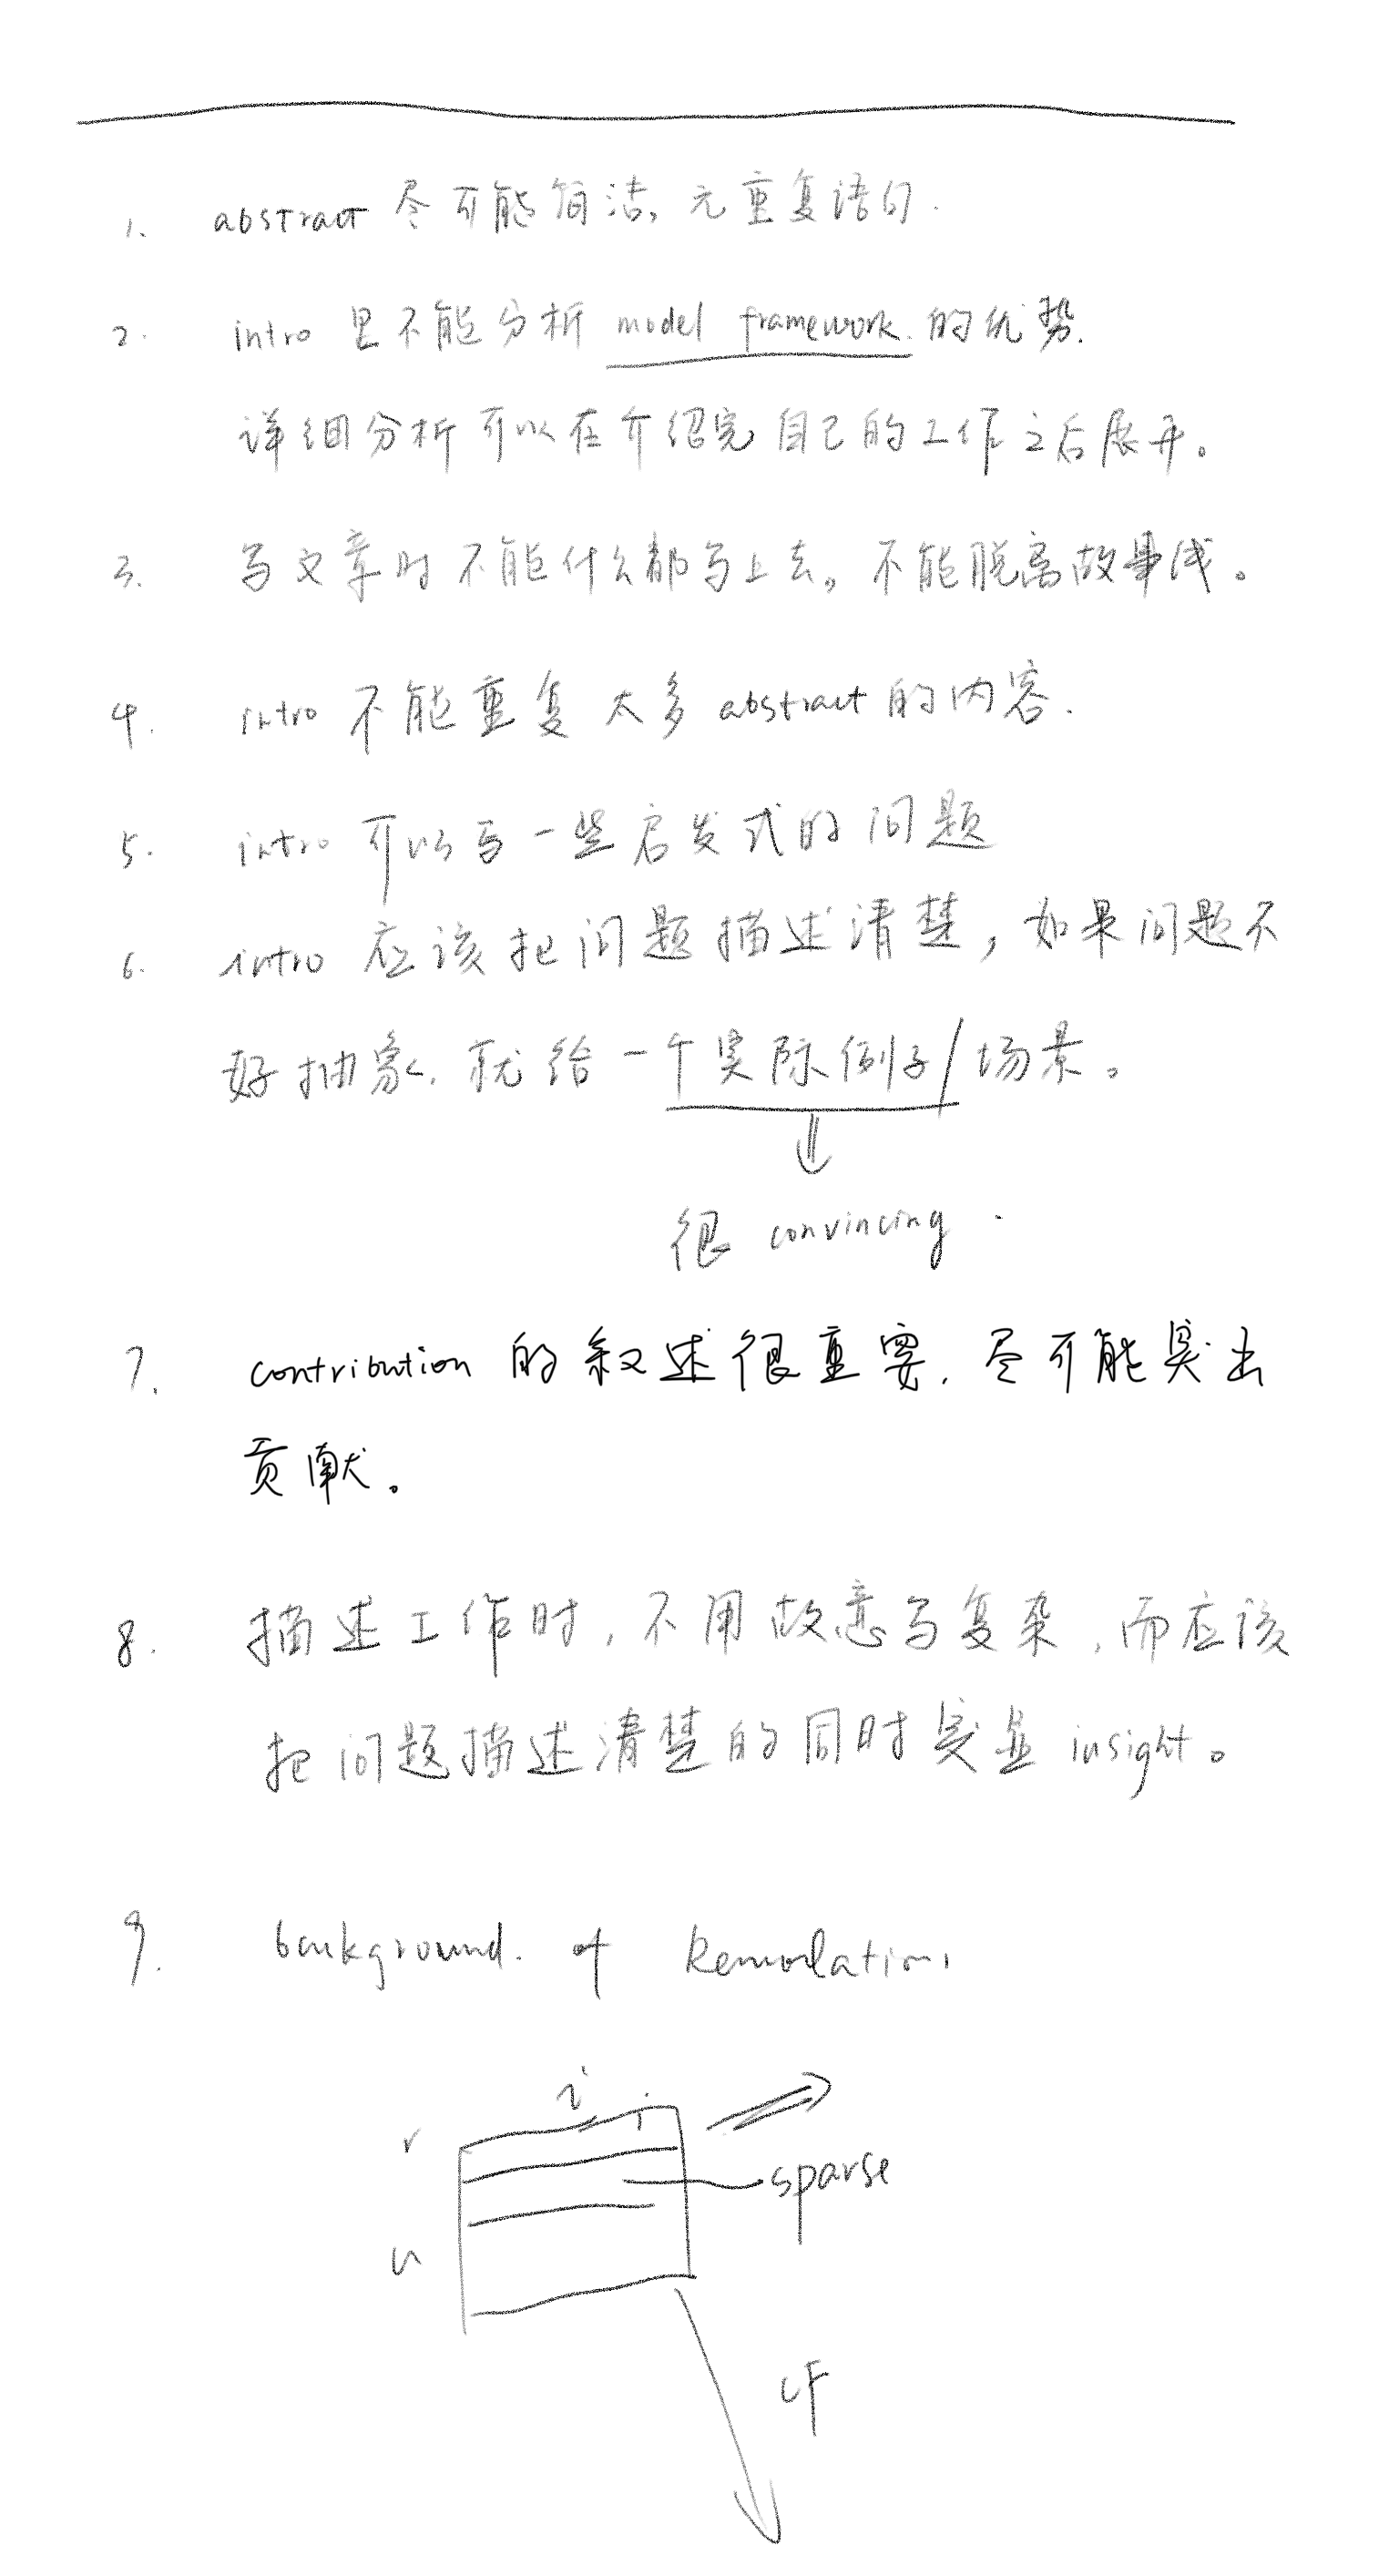 1. abstract 尽可能简洁, 无重复语句.
2. intro 里不能分析 model framework 的优势.
详细分析可以在介绍完自己的工作之后展开。
3. 写文章时不能什么都写上去。不能脱离故事线。
4. intro 不能重复太多 abstract 的内容.
5. intro 可以写一些启发式的问题
6. intro 应该把问题描述清楚, 如果问题不
好抽象, 就给一个实际例子/场景。
很 convincing.
7. contribution 的叙述很重要, 尽可能突出
贡献。
8. 描述工作时, 不用故意写复杂, 而应该
把问题描述清楚的同时突出 insight。
9. background of
i j
r
sparse
u
CF